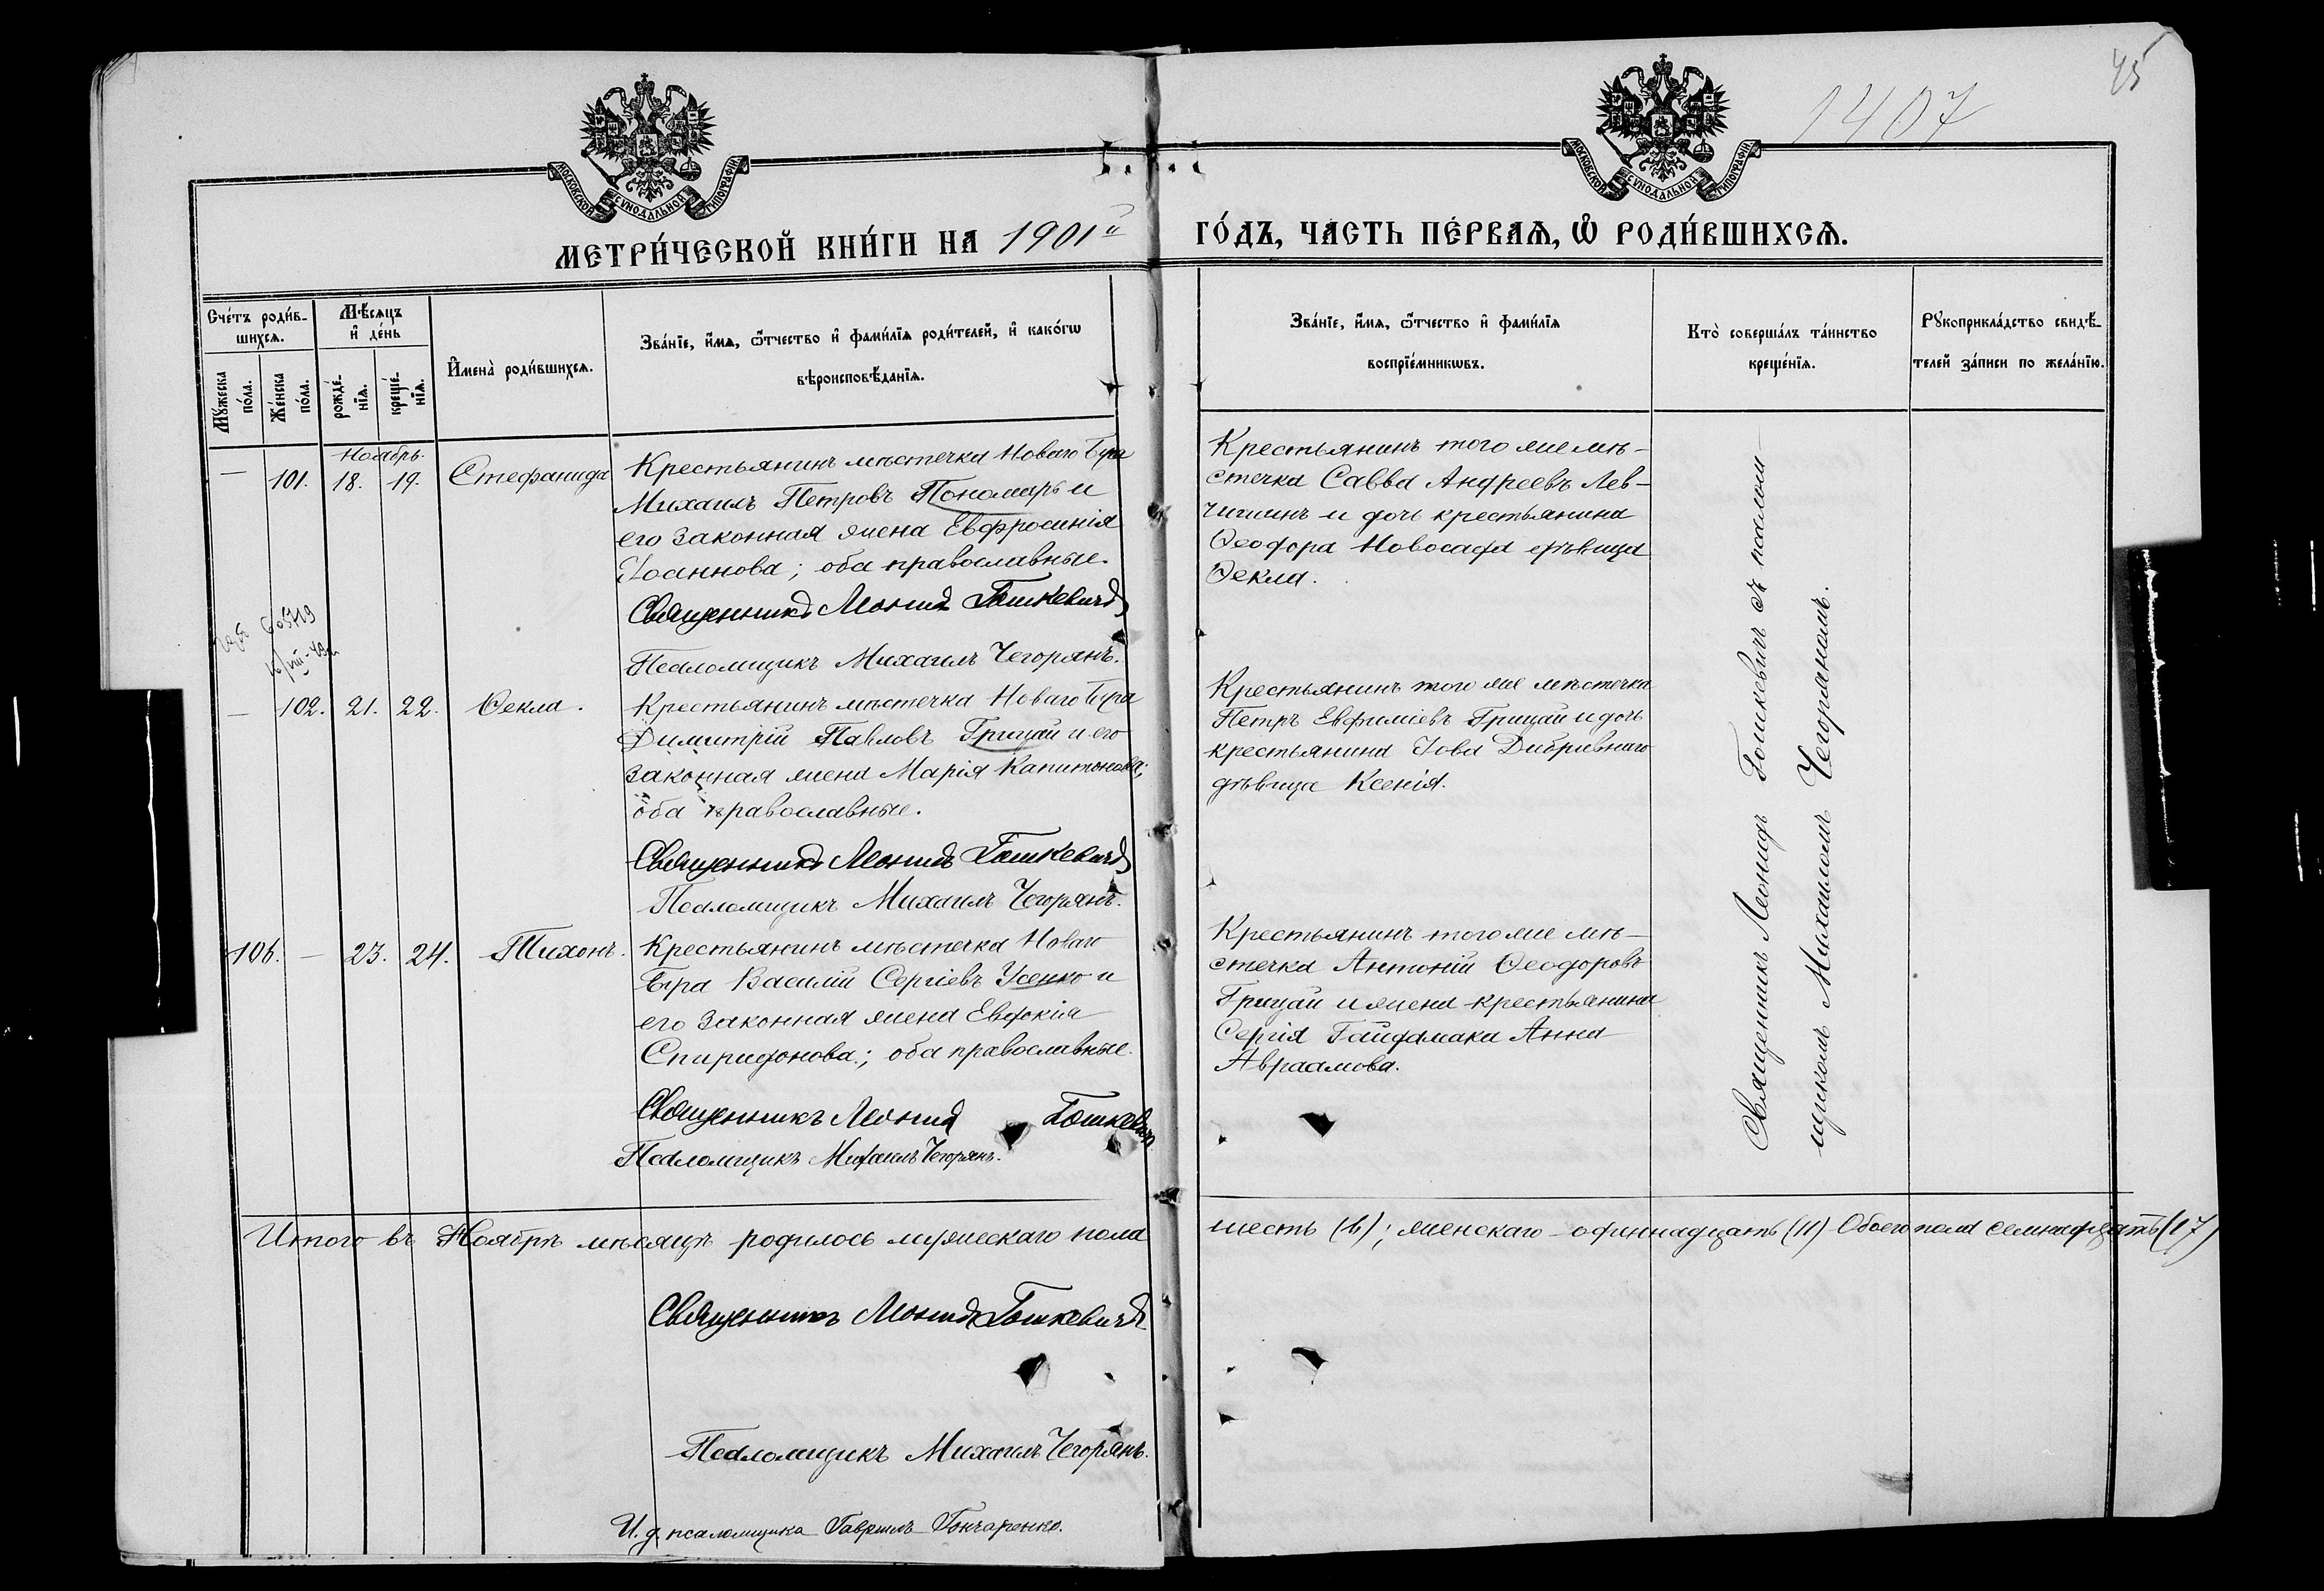 45
1407
МОСКОВСКОЙ СѴНОДАЛЬНОЙ ТИПОГРАФІИ
МОСКОВСКОЙ СѴНОДАЛЬНОЙ ТИПОГРАФІИ
МЕТРИ́ЧЕСКОЙ КНИ́ГИ НА 1901й ГО́ДЪ, ЧАСТЬ ПЕ́РВАѦ, Ѽ РОДИ́ВШИХСѦ.
Сче́тъ роди́в-
шихсѧ.
Мꙋ́жеска
по́ла.
Же́нска
по́ла.
Мѣ́сѧцъ
и҆ де́нь
рожде́-
нїѧ.
креще́-
нїѧ.
И҆мена̀ роди́вшихсѧ.
Зва́нїе, и҆́мѧ, ѻ҆́тчество и҆ фами́лїѧ роди́телей, и҆ како́гѡ
вѣроисповѣ́данїѧ.
Зва́нїе, и҆́мѧ, ѻ҆́тчество и҆ фами́лїѧ
воспрїе́мникѡвъ.
Кто̀ соверша́лъ та́инство
креще́нїѧ.
Рꙋкоприкла́дство свидѣ́-
телей за́писи по жела́нїю.
Ноябрь.
— 101. 18. 19. Стефанида
Крестьянинъ мѣстечка Новаго Буга
Михаилъ Петровъ Пономарь и
его законная жена Евфросинія
Іоаннова; оба православные.
Священникъ Леонидъ Гошкевичъ
Псаломщикъ Михаилъ Чегорянъ.
Крестьянинъ того же мѣ-
стечка Савва Андреевъ Лев-
чишинъ и дочь крестьянина
Ѳеодора Новосада дѣвица
Ѳекла.
— 102. 21. 22. Ѳекла.
Крестьянинъ мѣстечка Новаго Буга
Димитрій Павловъ Грицай и его
законная жена Марія Капитонова;
оба православные.
Священникъ Леонидъ Гошкевичъ
Псаломщикъ Михаилъ Чегорянъ.
Крестьянинъ того же мѣстечка
Петръ Евфиміевъ Грицай и дочь
крестьянина Іова Дибривнаго
дѣвица Ксенія.
106. — 23. 24. Тихонъ.
Крестьянинъ мѣстечка Новаго
Буга Василій Сергіевъ Усенко и
его законная жена Евдокія
Спиридонова; оба православные.
Священникъ Леонидъ Гошкевичъ
Псаломщикъ Михаилъ Чегорянъ.
Крестьянинъ того же мѣ-
стечка Антоній Ѳеодоровъ
Грицай и жена крестьянина
Сергія Гайдамака Анна
Авраамова.
Священникъ Леонидъ Гошкевичъ съ псалом-
щикомъ Михаиломъ Чегоряномъ.
Итого въ Ноябрѣ мѣсяцѣ родилось мужескаго пола шесть (6); женскаго одиннадцать (11) Обоего пола семнадцать (17)
Священникъ Леонидъ Гошкевичъ
Псаломщикъ Михаилъ Чегорянъ.
И. д. псаломщика Гавриилъ Гончаренко.